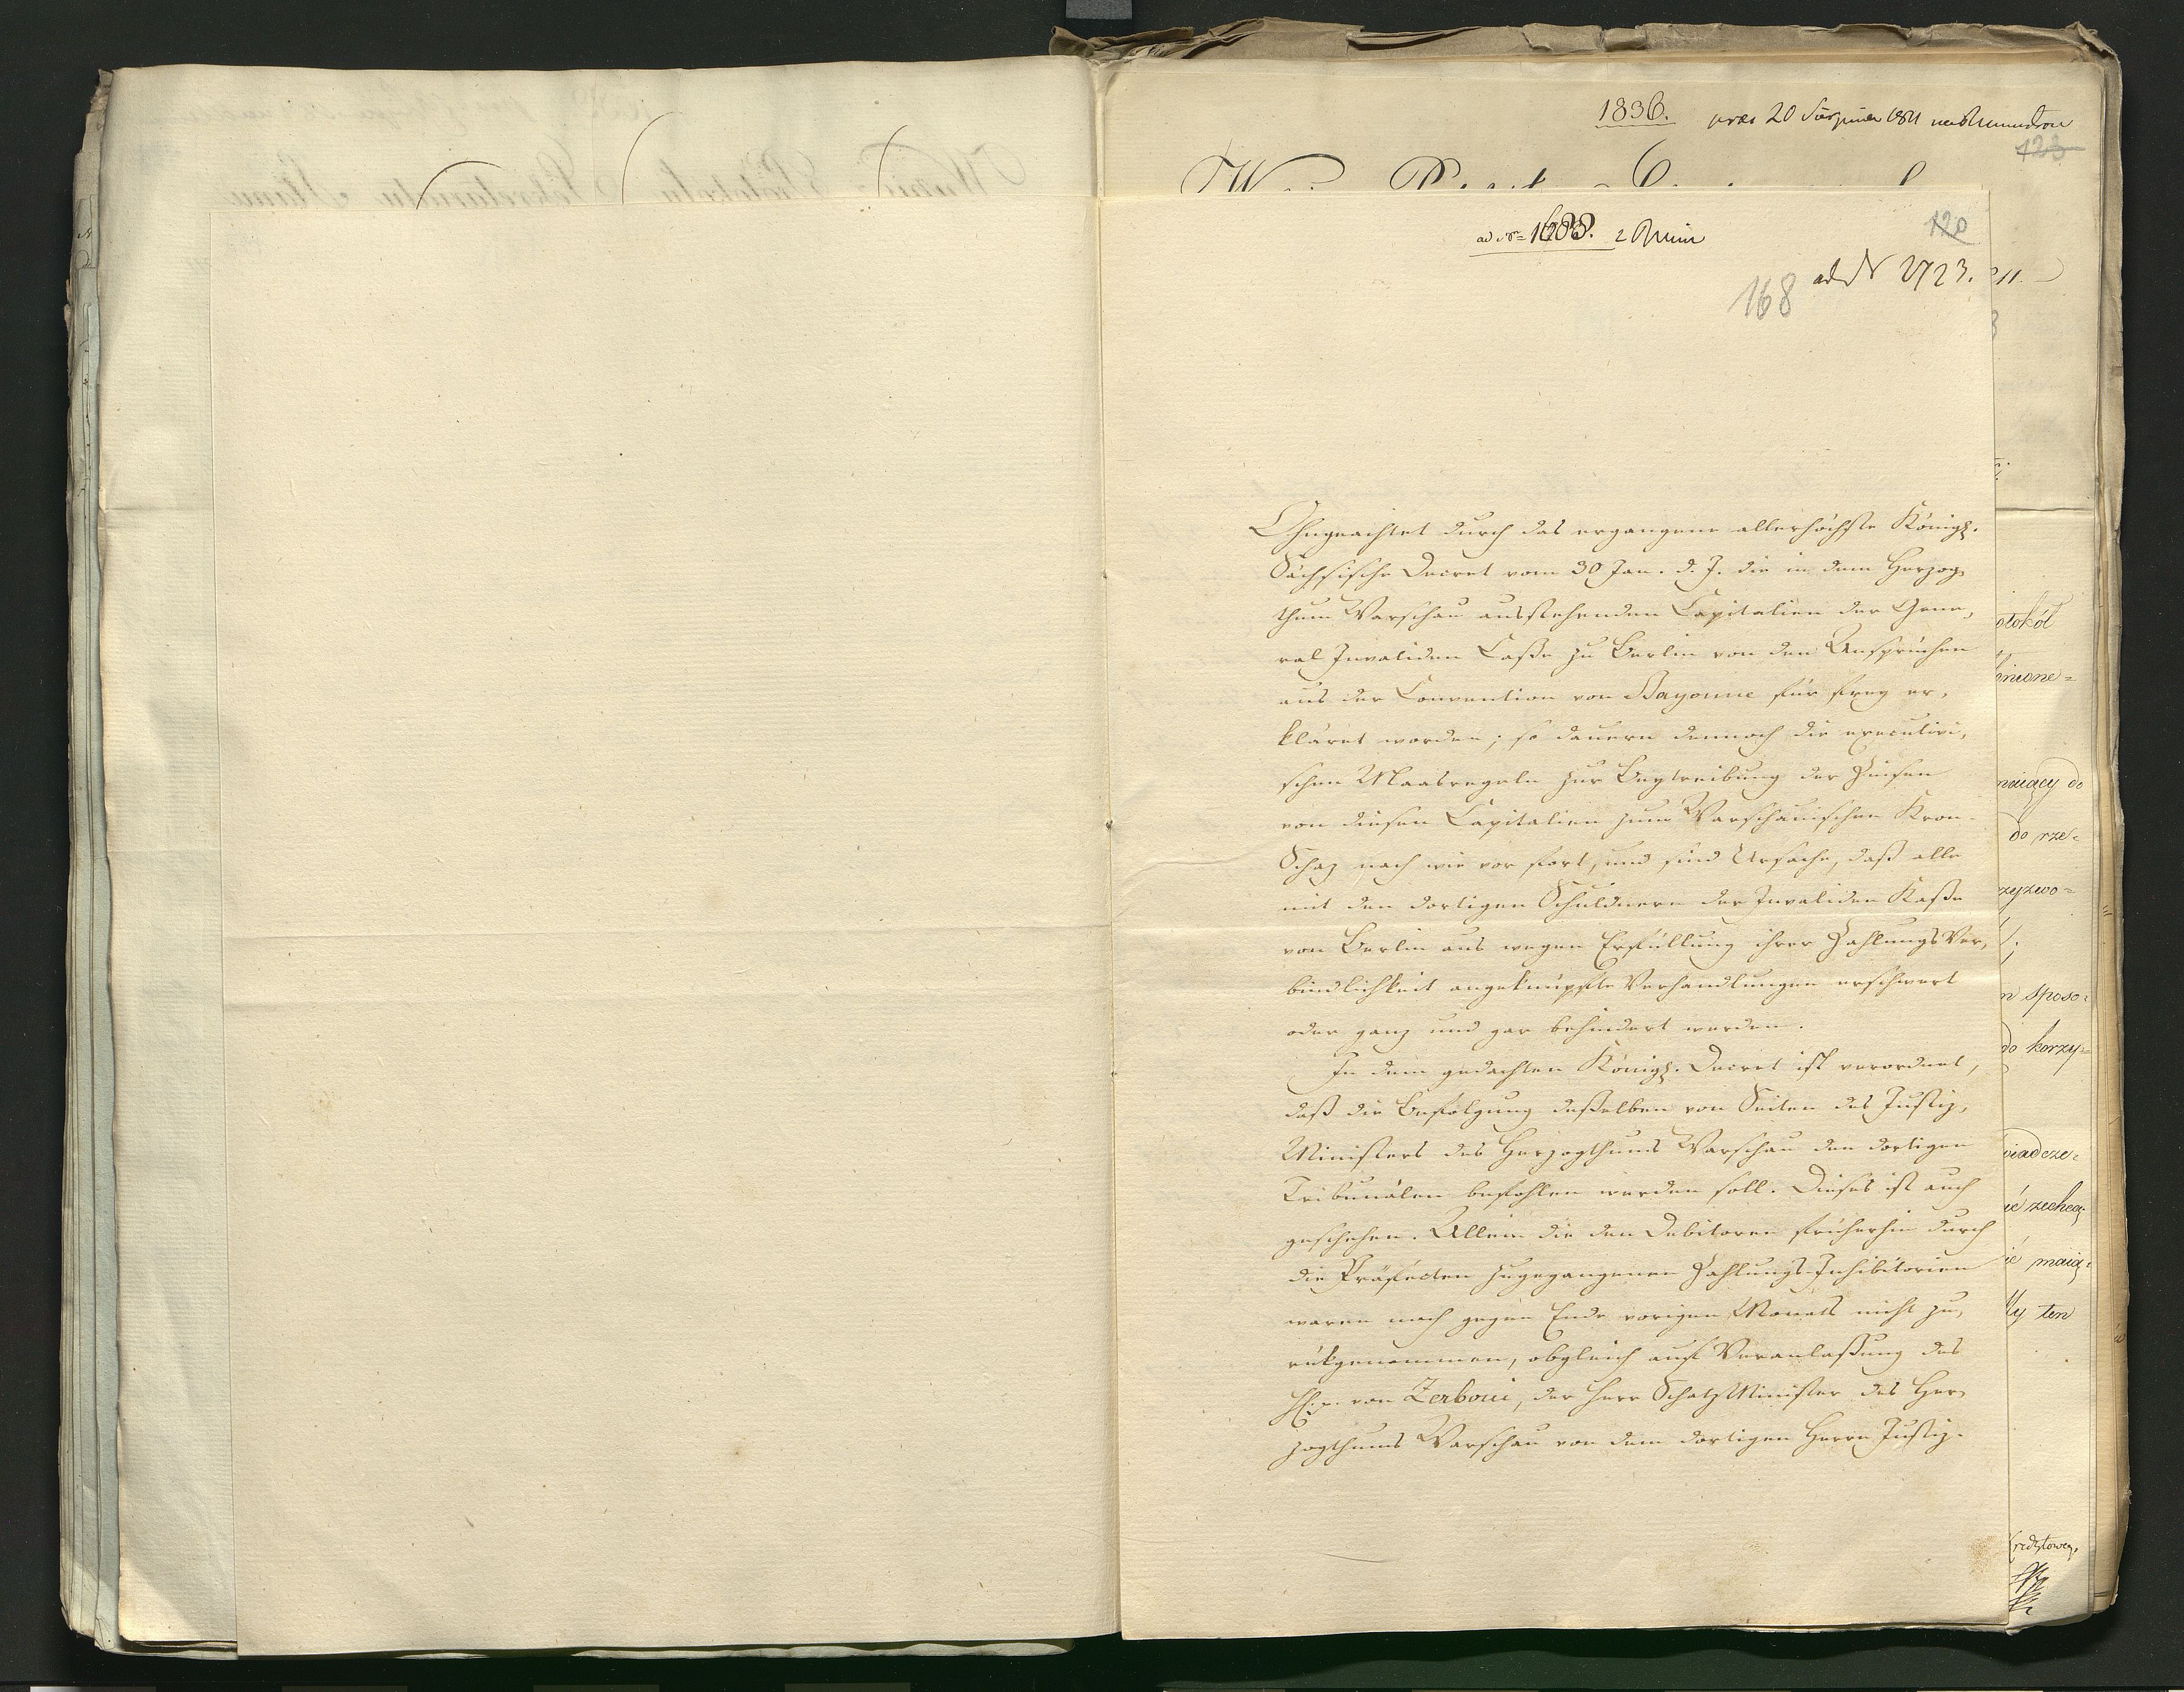 1836. præs 20 Sierpnia 1811
123
ad Nr 1688. 2 Rmin
120
ad N 2723.
168
Ohngeachtet durch das ergangene allerhöchste Königl.
Sächsische Decret vom 30 Jan. d. J. die in dem Herzog„
thum Warschau ausstehenden Capitalien der Gene„
ral Invaliden Casse zu Berlin von den Ansprüchen
aus der Convention von Bayonne für frey er„
klärt worden; so dauern dennoch die executivi„
schen Maasregeln zur Beytreibung der Zinsen
von diesen Capitalien zum Warschauischen Kron-
Schaz nach wie vor fort, und sind Ursache, daß alle
mit den dortigen Schuldnern der Invaliden Kaße
von Berlin aus wegen Erfüllung ihrer Zahlungs Ver„
bindlichkeit angeknüpfte Verhandlungen erschwert
oder ganz und gar behindert werden.
In dem gedachten Königl. Decret ist verordnet,
daß die Befolgung deßelben von Seiten des Justiz„
Ministers des Herzogthums Warschau den dortigen
Tribunälen befohlen werden soll. Dieses ist auch
geschehen. Allein die den Debitoren früherhin durch
die Präfecten zugegangenen Zahlungs-Inhibitorien
waren noch gegen Ende vorigen Monats nicht zu„
rükgenommen, obgleich auf Veranlaßung des
von Zerboni, der Herr Schatz Minister des Her„
zogthums Warschau von dem dortigen Herrn Justiz-
otokół
inione=
maiący do
do rze=
zyzwo=
n sposo=
do korzy=
viadcze=
ić zechcą
ić maią
ły ten